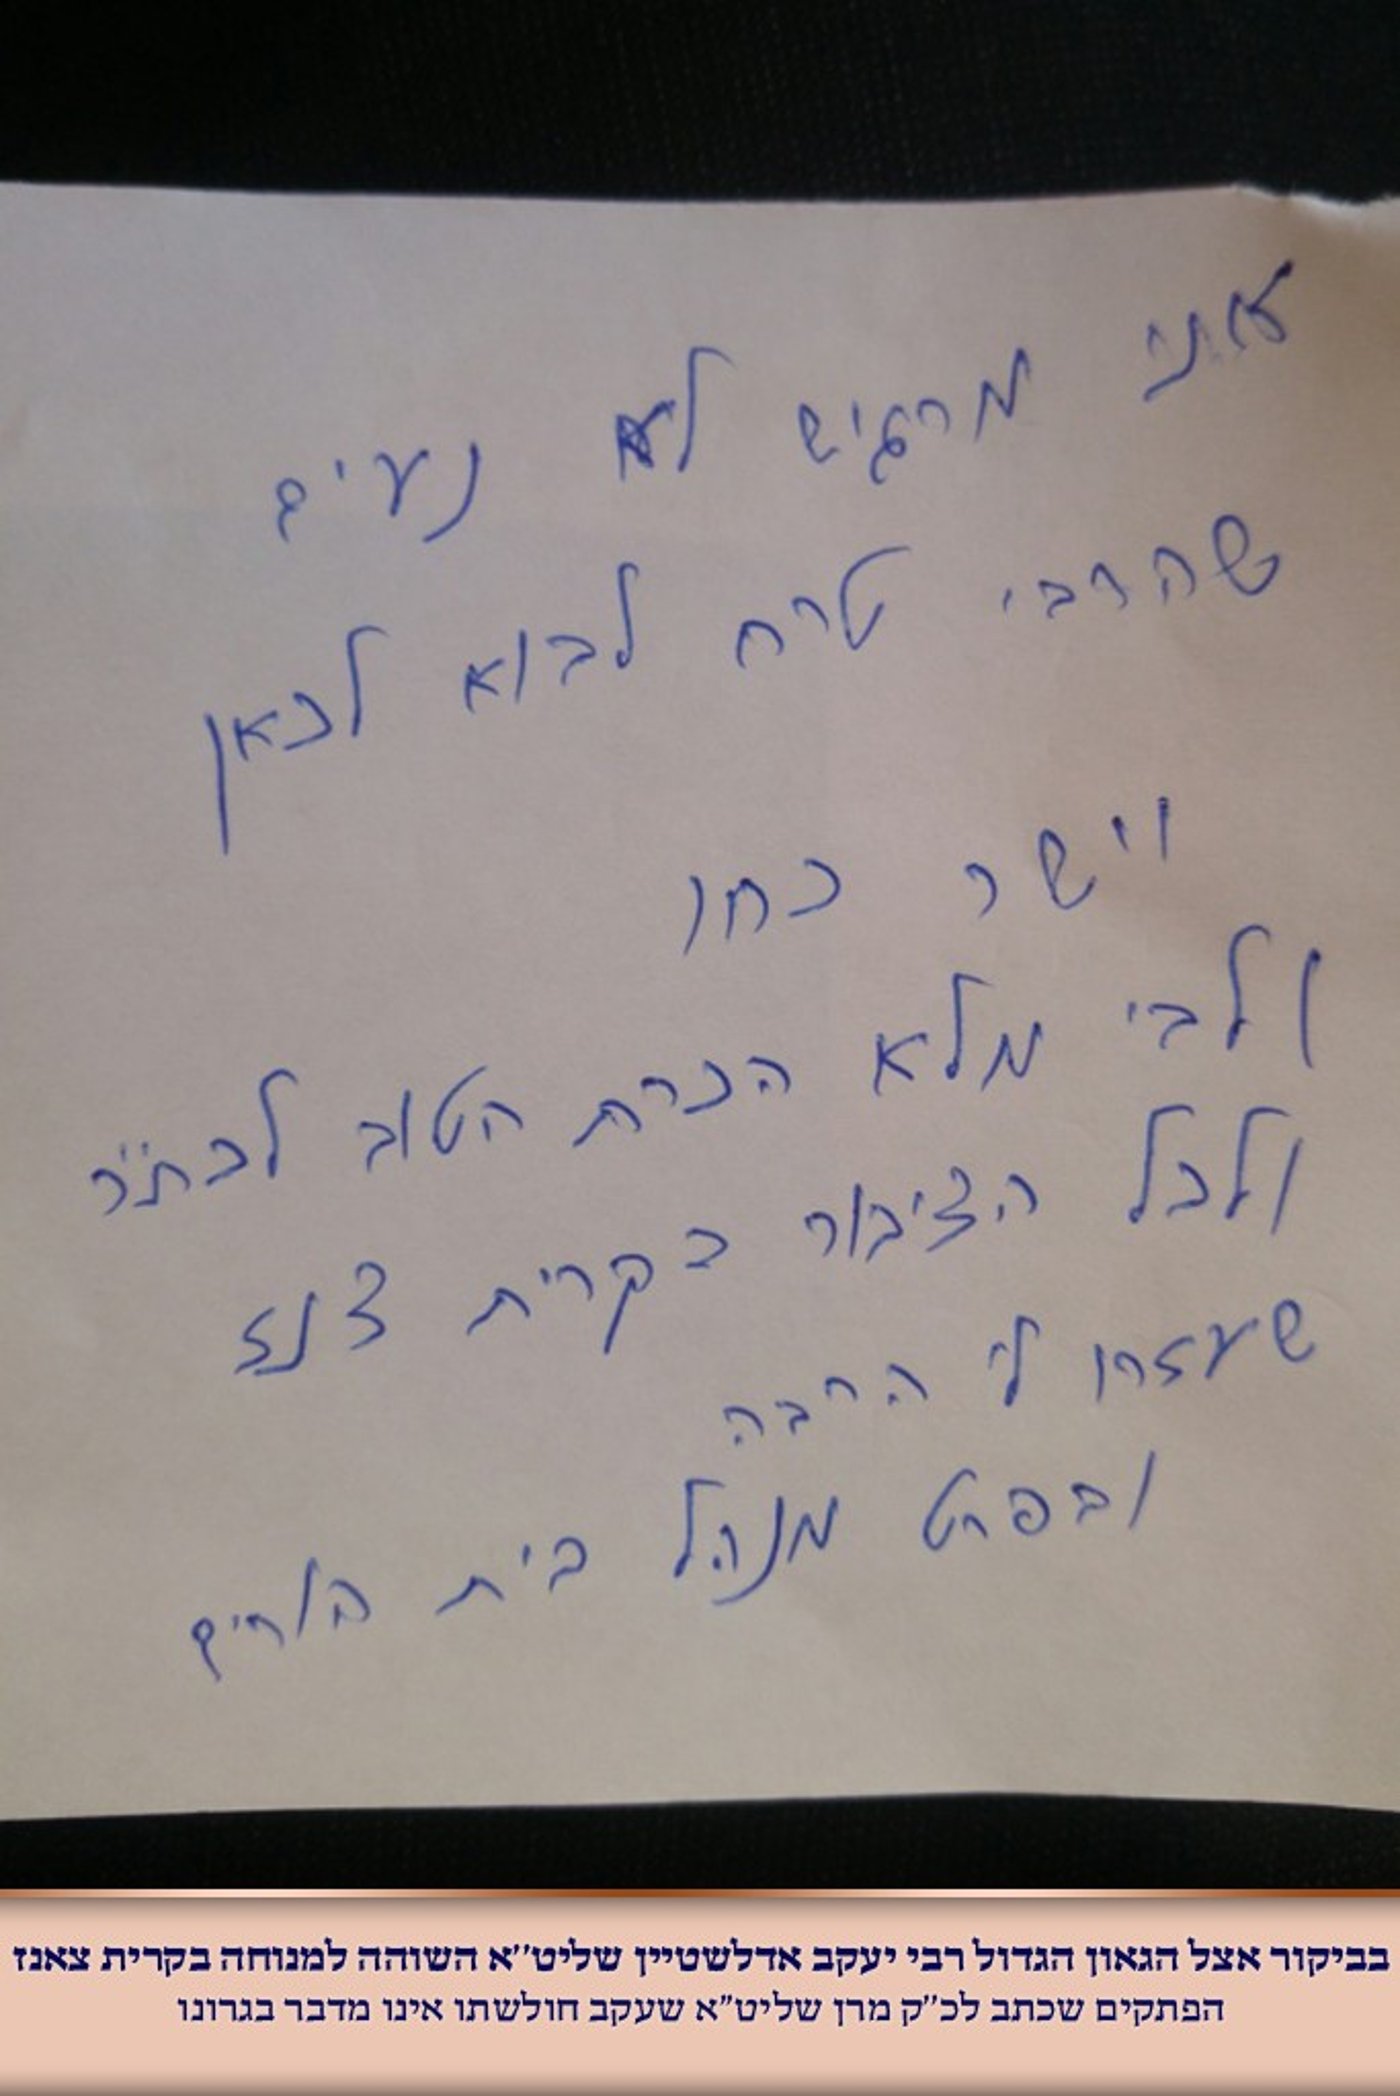 אני מרגיש לא נעים
שהרבי טרח לבוא לכאן
ויישר כחו
ולבי מלא הכרת הטוב לכת״ר
ולכל הציבור בקרית צנז
שעזרו לי הרבה
ובפרט מנהל בית הורים
בביקור אצל הגאון הגדול רבי יעקב אדלשטיין שליט״א השוהה למנוחה בקרית צאנז
הפתקים שכתב לכ״ק מרן שליט״א שעקב חולשתו אינו מדבר בגרונו